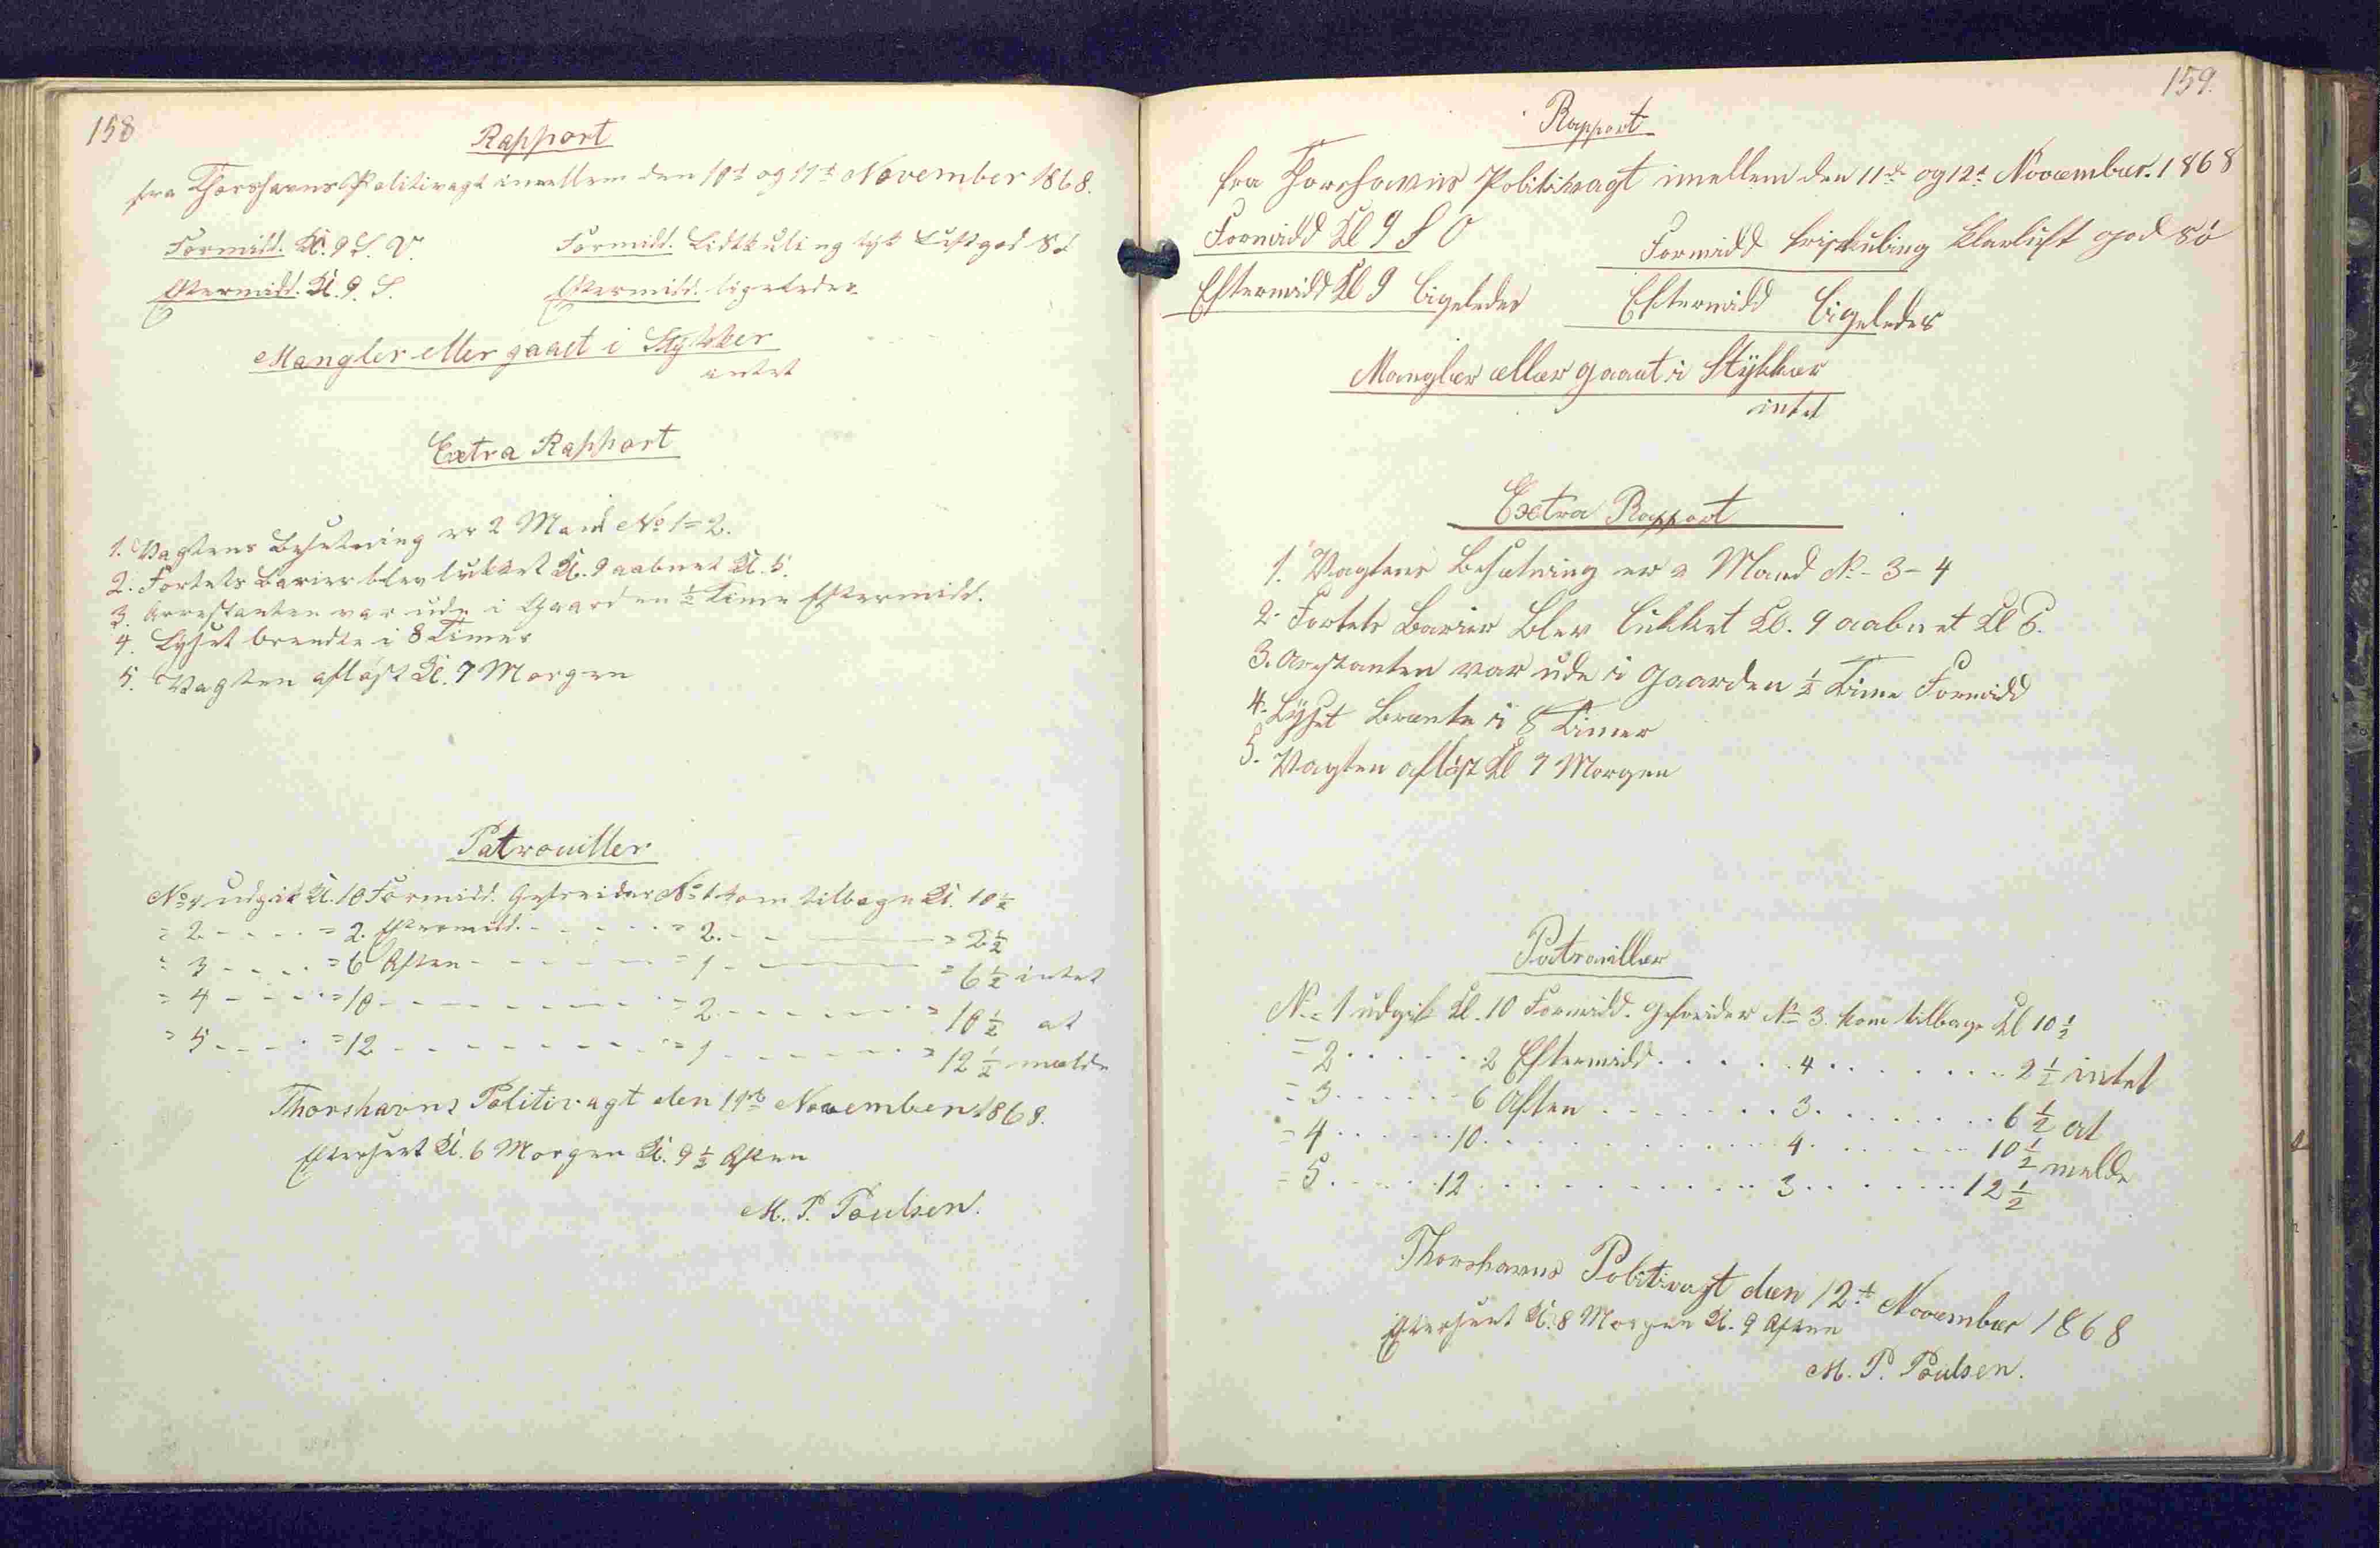 158
Rapport
fra Thorshavns Politivagt imellem den 10de og 11te November 1868.
Formidd. Kl. 9 S. V. Formidd. Lidtkuling tyk Luft god Sö
Eftermidd. Kl. 9. S. Eftermidd. ligeledes
Mangler eller gaaet i Stykker
intet
Extra Rapport
1. Vagtens Besetning er 2 Mand No 1=2.
2. Fortets Barier blev lukket Kl. 9 aabnet Kl. 5.
3. Arrestanten var ude i Gaarden ½ Time Eftermidd.
4. Lyset brendte i 8 Timer
5. Vagten aflöst Kl. 7 Morgen
Patrouiller
No 1 udgik Kl. 10 Formidd. Gefreider No 1 kom tilbage Kl. 10½
= 2 - - - - = 2. Eftermidd. - - - - - = 2. - - = 2½
= 3 - - - - = 6 Aften - - - - - - = 1 - - = 6½ intet
= 4 - - - - = 10 - - - - - - - - = 2 - - - - - - = 10½ at
= 5 - - - - = 12 - - - - - - - - = 1 - - - - - - = 12½ melde
Thorshavns Politivagt den 11te November 1868.
Efterseet Kl. 6 Morgen Kl. 9½ Aften
M. P. Poulsen.
159.
Rapport
fra Thorshavns Politivagt imellem den 11te og 12te November. 1868
Formidd Kl 9 S O Formidd friskuling klarluft god Sö
Eftermidd Kl 9 ligeledes Eftermidd ligeledes
Mangler eller gaaet i Stÿkker
intet
Extra Rapport
1. Vagtens Besætning er 2 Mand No - 3 - 4
2. Fortets Barier Blev lukket Kl. 9 aabnet Kl 6.
3. Arestanten var ude i Gaarden ½ Time Formidd
4. Lyset Brente i 8 Timer
5. Vagten aflöst Kl 7 Morgen
Patrouiller
No = 1 udgik Kl. 10 Formidd. Gefreider No 3. kom tilbage Kl 10½
= 2 . . . . . . 2 Eftermidd . . . . . 4 . . . . . . . 2½ intet
= 3 . . . . . . 6 Aften . . . . . . . 3 . . . . . . . 6½ at
= 4 . . . . . . 10 . . . . . . . . . . 4 . . . . . . 10½ melde
= 5 . . . . . . 12 . . . . . . . . . . 3 . . . . . . 12½
Thorshavns Politivagt den 12te November 1868
Efterseet Kl. 8 Morgen Kl. 9 Aften
M. P. Poulsen.